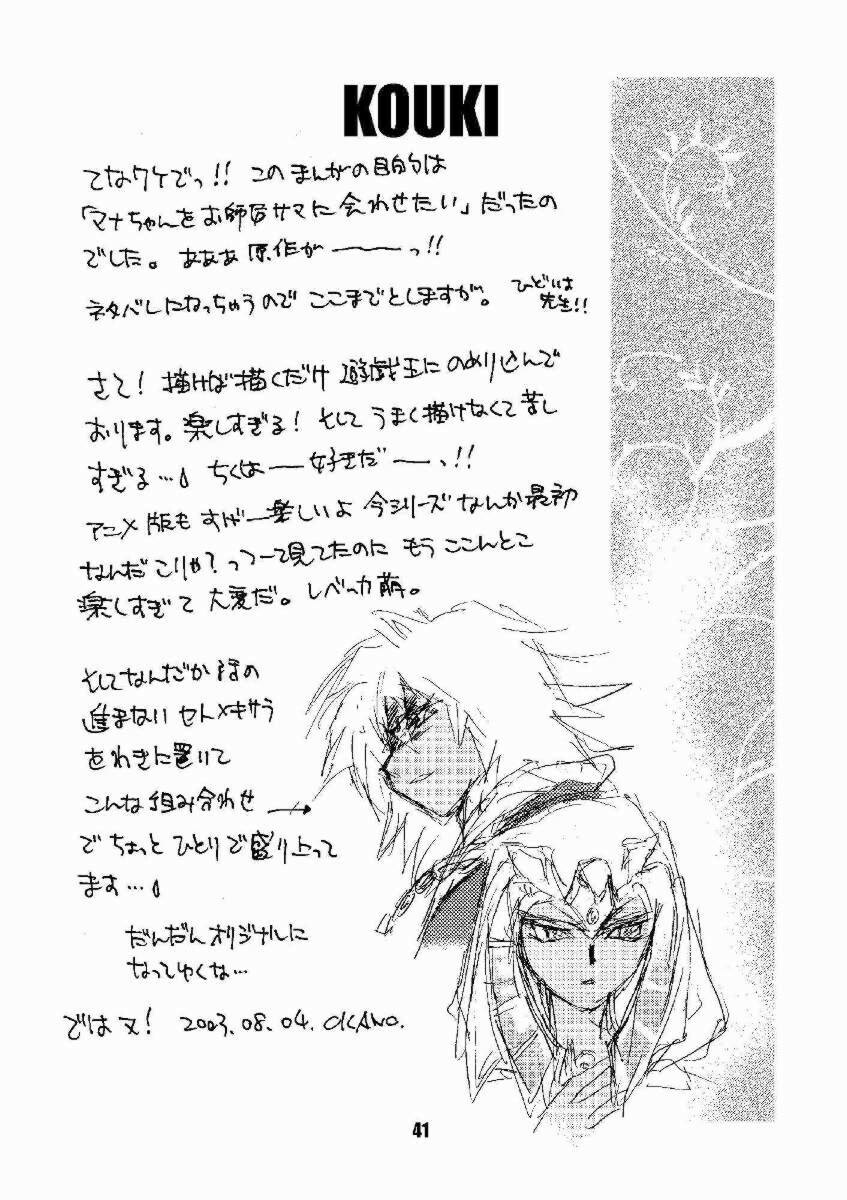 KOUKI
てなワケでっ!! このまんがの目的は
「マナちゃんをお師匠サマに会わせたい」だったの
でした。あああ原作が———っ!!
ネタバレになっちゃうので ここまでとしますが。 ひどいは
先生!!
さて! 描けば描くだけ 遊戯王に のめり込んで
おります。楽しすぎる! そして うまく描けなくて苦し
すぎる… ちくは——好きだ——っ!!
アニメ版も すげー楽しいよ 今シリーズ なんか最初
なんだこりゃ? っつーて見てたのに もう ここんとこ
楽しすぎて 大変だ。レベッカ萌。
そしてなんだか 話の
進まない セト×キサラ
をわきに置いて
こんな組み合わせ →
で ちょっと ひとりで盛り上って
ます…
だんだん オリジナルに
なってゆくな…
では又! 2003.08.04. OKANO.
41